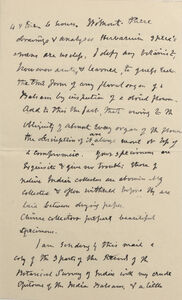 4 hours. Without these
drawing & analysis Herbarium speci-
mens are useless. I defy any botanist
however acute, & learned, to guess at
the true form of any floral organ of a
Balsam by inspection of a dried flower.
Add to this the fact, that owing to the
obliquity of almost every organ of the flower
the description of it alone more or less of
a compromise. Your specimens are
exquisite & give no trouble; those of
Native Indian collectors are abominably
collected & often withered before they are
laid between drying paper.
Chinese collectors prepare beautiful
specimens.
I am sending by this mail a
copy of the 3d part of the Record of the
Botanical Survey of India with my crude
Epitome of the Indian Balsams, & a little